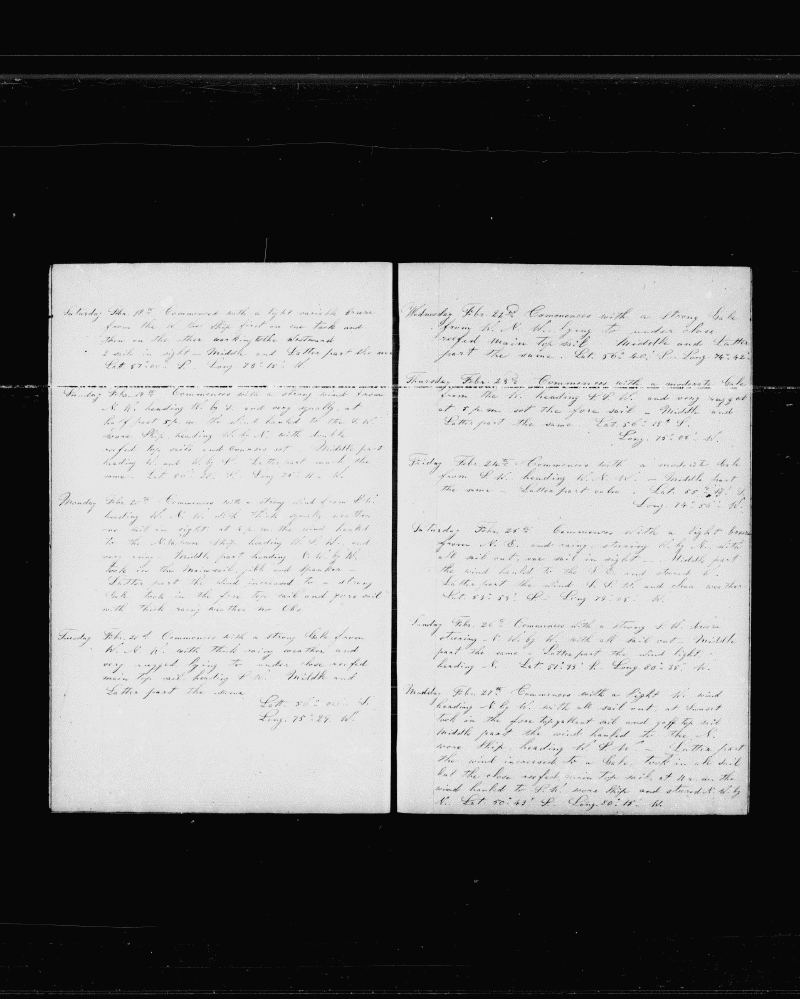 Saturday Febr. 18th Commences with a light variable breze
from the W. lor ship first on one tack and
then on the other working to the Westward
2 sail in sight - Middle and Latter part the same
Lat. 57° S. Long 78° 15' W.
Sunday Febr. 19th Commences with a strong wind from
N.W. heading W. by S. and very squally, at
half past 5 p.m. the wind hauled to the S.W.
wore Ship heading W. by N. with double
reefed top sails and courses set Middle part
heading W. and W. by S. Latter part much the
same. Lat. S. Long W.
Monday Febr. 20th Commences with a strong wind from S.W.
heading W.N.W. with thick squally weather
no sail in sight, at 4 p.m. the wind hauled
to the N. wore ship heading W.S.W. and
very rainy. Middle part heading W. by W.
took in the Mainsail, jib and Spanker -
Latter part the wind increased to a strong
Gale took in the fore top sail and fore sail
with thick rainy weather no Obs.
Tuesday Febr. 21st Commences with a strong Gale from
W.N.W. with thick rainy weather and
very rugged lying to under close reefed
main top sail heading S.W. Middle and
Latter part the same
Latt. 56° S.
Long. 75° 29' W.
Wednesday Febr. 22nd Commences with a strong Gale
from W.N.W. lying to under close
reefed main top sail - Middle and Latter
part the same. Lat. 56° 40' S. Long 74° 42'
Thursday Febr. 23d Commences with a moderate Gale
from the W. heading S.S.W. and very rugged
at 5 p.m. set the fore sail - Middle and
Latter part the same Lat. 56° 18' S.
Long. 75° 08' W.
Friday Febr. 24th Commences with a moderate Gale
from S.W. heading W.N.W. - Middle part
the same - Latter part calm. Lat. 55° S.
Long. 74° 50' W.
Saturday Febr. 25th Commences with a light breeze
from N.E. and rainy, steering W. by N. with
all sail out, one sail in sight - Middle part
the wind hauled to the S.E. and steered W.
Latter part the wind S.S.W. and clear weather
Lat. 53° 53' S. - Long. W.
Sunday Febr. 26th Commences with a strong S.W. breeze
steering N.W. by W. with all sail out - Middle
part the same - Latter part the wind light -
heading N. Lat. 51° 39' S. Long 80° 35' W.
Monday Febr. 27th Commences with a light W. wind
heading N. by W. with all sail out, at Sunset
took in the fore top gallent sail and gaff top sail
Middle paart the wind hauled to the N.
wore ship heading W.S.W. - Latter part
the wind increased to a Gale, took in all sail
but the close reefed main top sail, at the
wind hauled to S.W. wore ship and steered N.W. by
N. Lat. 50° 43' S. Long. 80° 15' W.